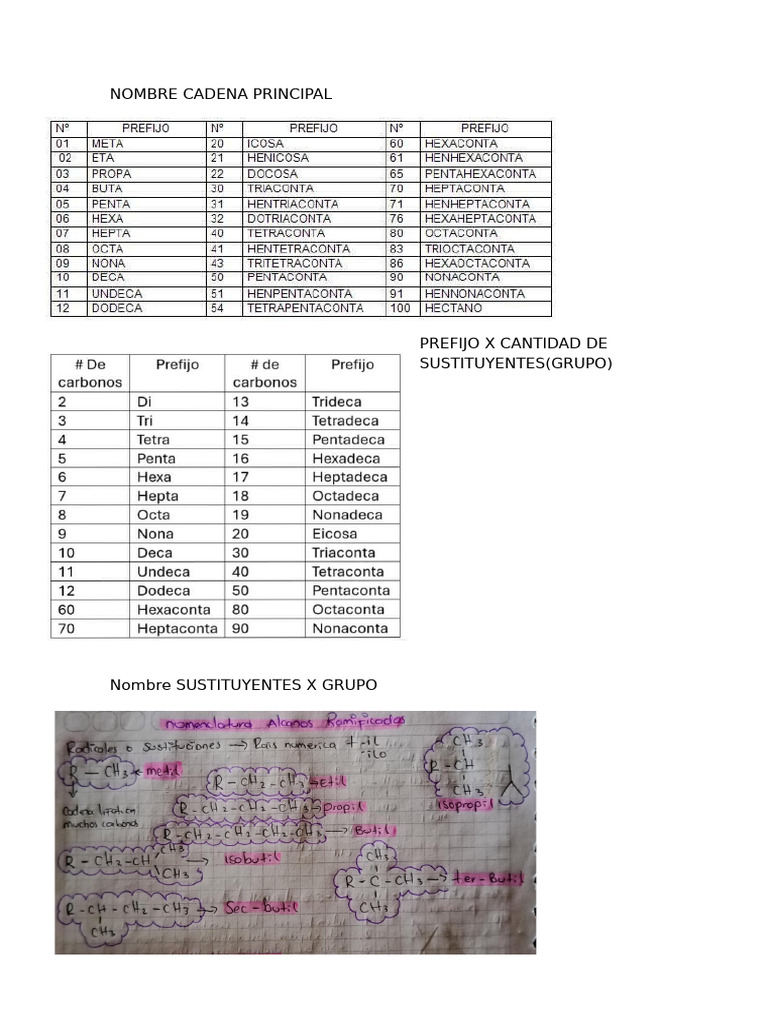 NOMBRE CADENA PRINCIPAL
Nº PREFIJO Nº PREFIJO Nº PREFIJO
01 META 20 ICOSA 60 HEXACONTA
02 ETA 21 HENICOSA 61 HENHEXACONTA
03 PROPA 22 DOCOSA 65 PENTAHEXACONTA
04 BUTA 30 TRIACONTA 70 HEPTACONTA
05 PENTA 31 HENTRIACONTA 71 HENHEPTACONTA
06 HEXA 32 DOTRIACONTA 76 HEXAHEPTACONTA
07 HEPTA 40 TETRACONTA 80 OCTACONTA
08 OCTA 41 HENTETRACONTA 83 TRIOCTACONTA
09 NONA 43 TRITETRACONTA 86 HEXAOCTACONTA
10 DECA 50 PENTACONTA 90 NONACONTA
11 UNDECA 51 HENPENTACONTA 91 HENNONACONTA
12 DODECA 54 TETRAPENTACONTA 100 HECTANO
PREFIJO X CANTIDAD DE
SUSTITUYENTES(GRUPO)
# De carbonos Prefijo # de carbonos Prefijo
2 Di 13 Trideca
3 Tri 14 Tetradeca
4 Tetra 15 Pentadeca
5 Penta 16 Hexadeca
6 Hexa 17 Heptadeca
7 Hepta 18 Octadeca
8 Octa 19 Nonadeca
9 Nona 20 Eicosa
10 Deca 30 Triaconta
11 Undeca 40 Tetraconta
12 Dodeca 50 Pentaconta
60 Hexaconta 80 Octaconta
70 Heptaconta 90 Nonaconta
Nombre SUSTITUYENTES X GRUPO
nomenclatura Alcanos Ramificados
Radicales o sustituciones → Rais numerica + -il
-ilo
R - CH3 metil
Cadena
muchos carbonos
R - CH2 - CH3 → Etil
R - CH2 - CH2 - CH3 → propil
R - CH2 - CH2 - CH2 - CH3 → Butil
CH3
R - CH
CH3
isopropil
R - CH2 - CH
CH3
CH3
→ isobutil
CH3
R - C - CH3 → ter-Butil
CH3
R - CH - CH2 - CH3 → Sec-butil
CH3